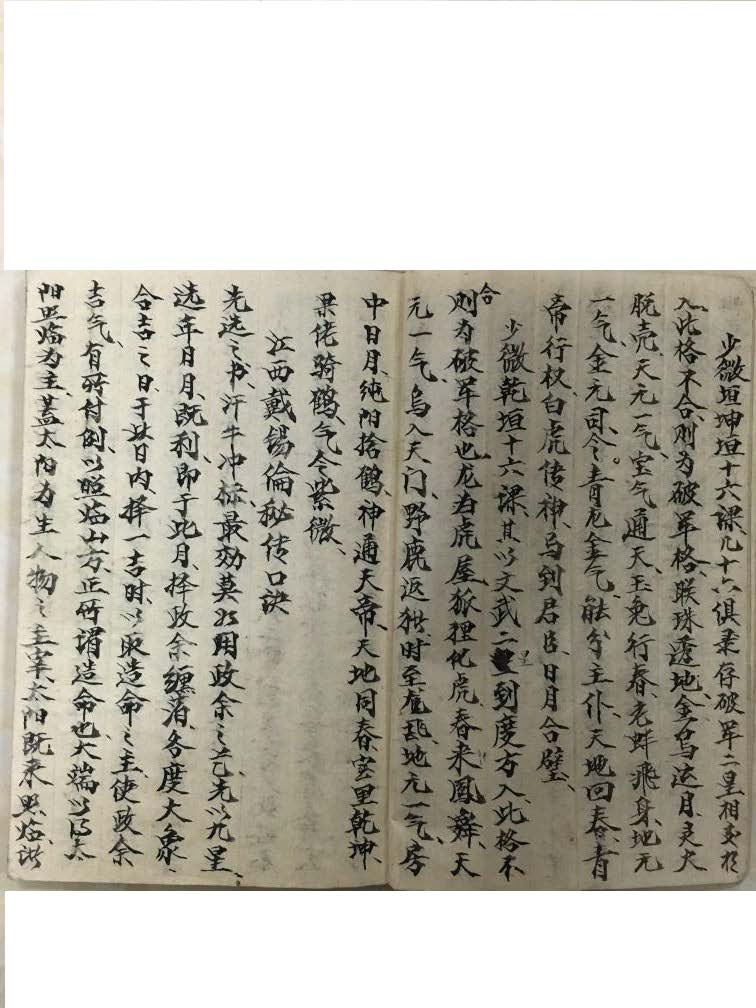 少微垣坤垣十六课、凡十六俱未存破军二星相交于
入此格不合则为破军格、联珠透地、金乌运月、灵火
脱壳、天元一气、宝气通天、玉兔行春、老蚌飛身、地元
一气、金元司令。青龙金气、能分主仆、天地回春、青
帝行权、白虎传神、马到君臣、日月合璧、
少微乾垣十六课、其以文武二星到度方入此格不
合则为破军格也、龙为虎屋、狐狸化虎、春来鳳舞、天
元一气、乌入天门、野鹿返 时至 地元一气、房
中日月、纯阳捨鹤、神通天帝、天地同春、室里乾坤、
果佬骑鹤、气令紫微、
江西戴锡倫秘传口诀
先选之书、汗牛冲栋、最効莫如用政余之书、先以九星、
选年日月、既利即于此月、择政余缠落、各度大象、
合吉之日、于此日内、择一吉时、以取造命之主、使政余
吉气、有所付倒、以照临山方、正所谓造命也、大端以得太
阳照临为主、蓋太阳为生人物之主宰、太阳既来照临、